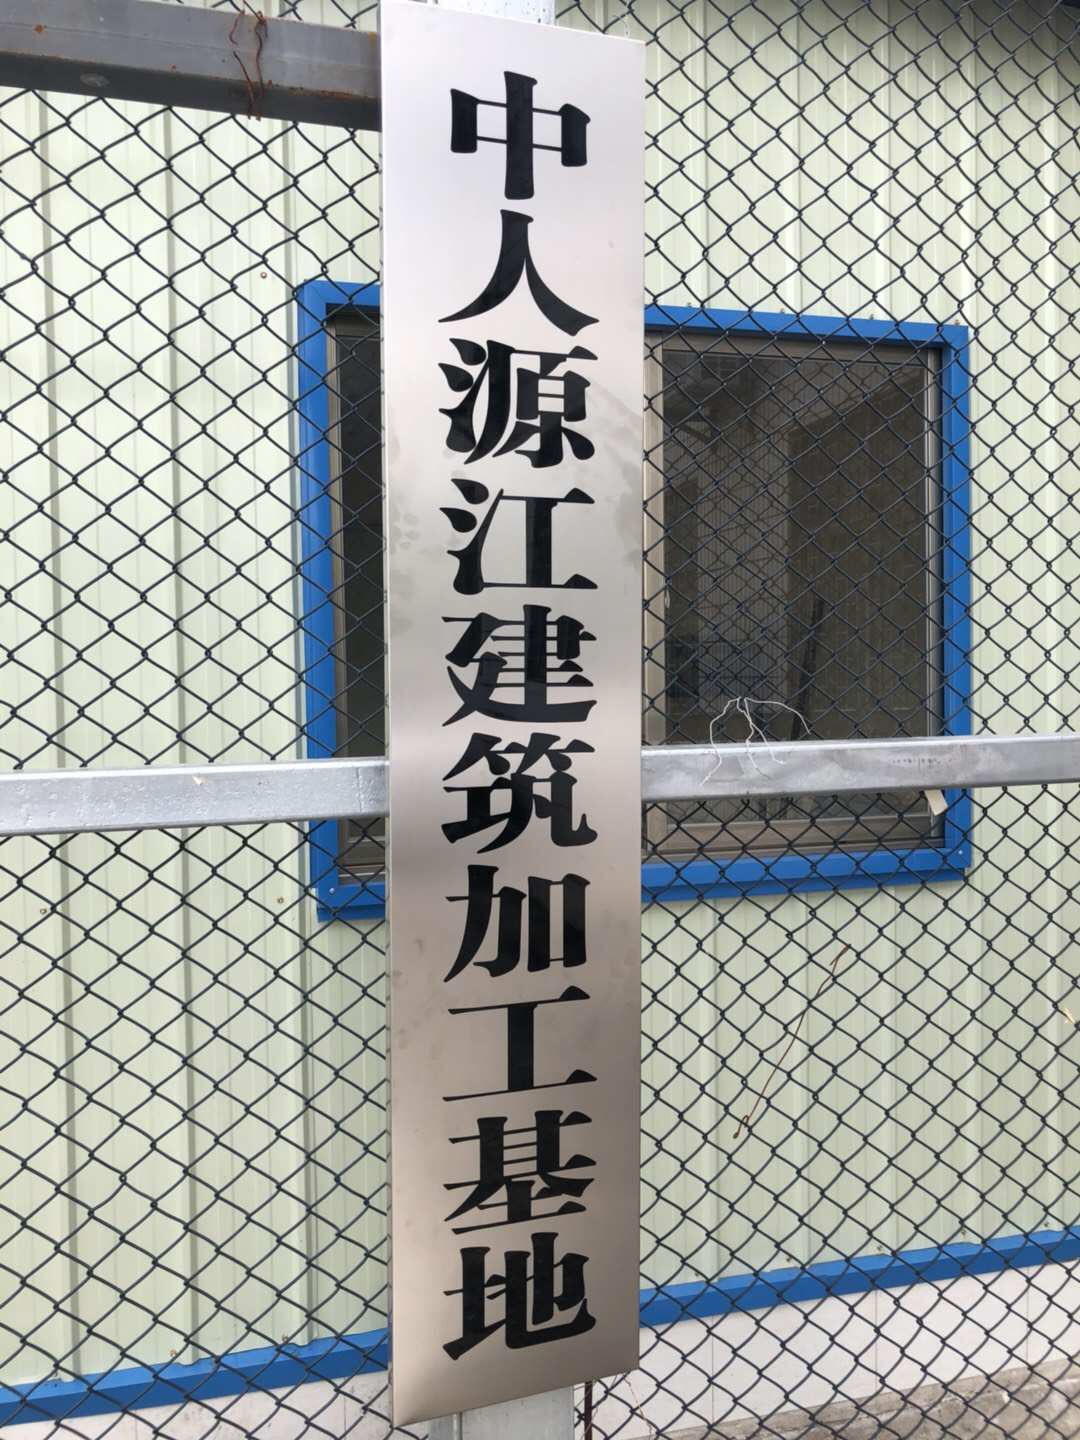 中人源江建筑加工基地